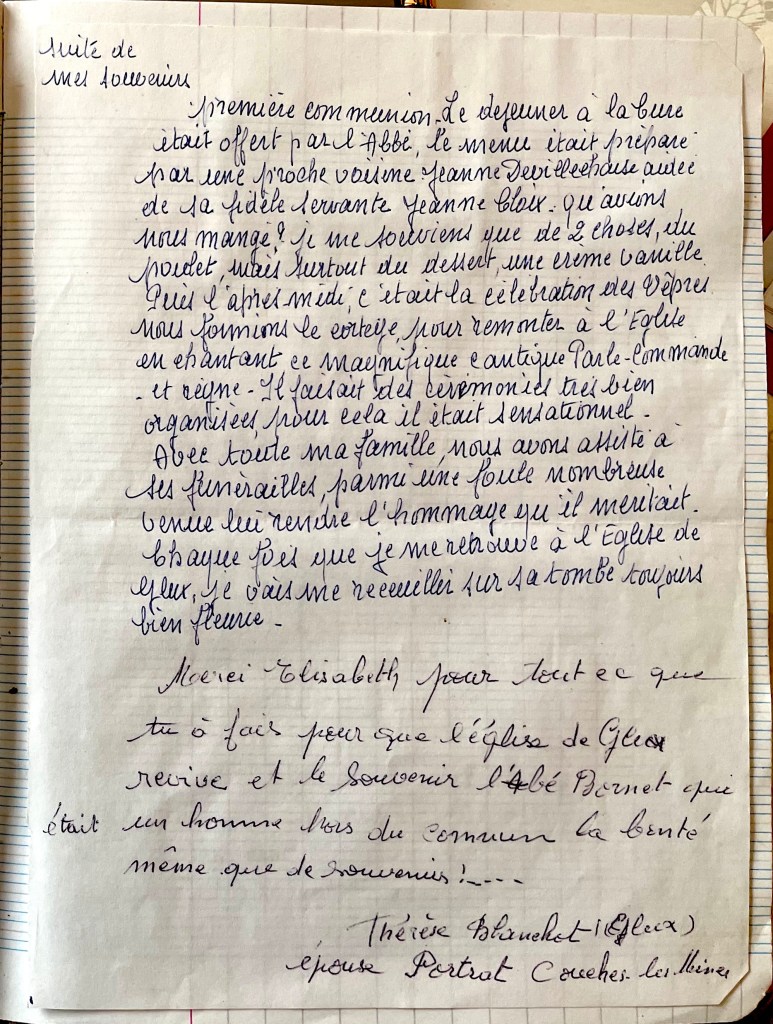 suite de
mes souvenirs
première communion. Le dejeuner à la Cure
était offert par l'Abbé, le menu était préparé
par une proche voisine Jeanne Devillechaise aidée
de sa fidèle servante Jeanne Cloix. qu'avions
nous mangé? je me souviens que de 2 choses, du
poulet, mais surtout du dessert, une crème vanille
Puis l'après midi, c'était la célébration des Vêpres
nous formions le cortège, pour remonter à l'Eglise
en chantant ce magnifique cantique Parle-Commande
- et règne - Il faisait des cérémonies très bien
organisées, pour cela il était sensationnel.
Avec toute ma famille, nous avons assisté à
ses funèrailles, parmi une foule nombreuse
venue lui rendre l'hommage qu'il meritait.
Chaque fois que je me retrouve à l'Eglise de
Glux, je vais me recueillir sur sa tombe toujours
bien fleurie -
Merci Elisabeth pour tout ce que
tu à fais pour que l'église de Glux
revive et le souvenir l'Abbé Bornet qui
était un homme hors du commun la bonté
même que de souvenirs!....
Thérèse Blanchot (Glux)
épouse Portrat Couches-les-Mines